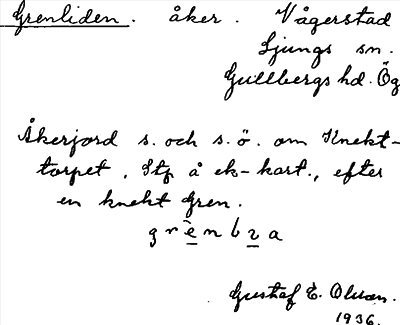 Grenliden. åker. Vågerstad
Ljungs sn.
Gullbergs hd. Ög
Åkerjord s. och s.ö. om Knekt-
torpet, Stp å ek-kart., efter
en knekt Gren.
Gustaf E. Olsson.
1936.